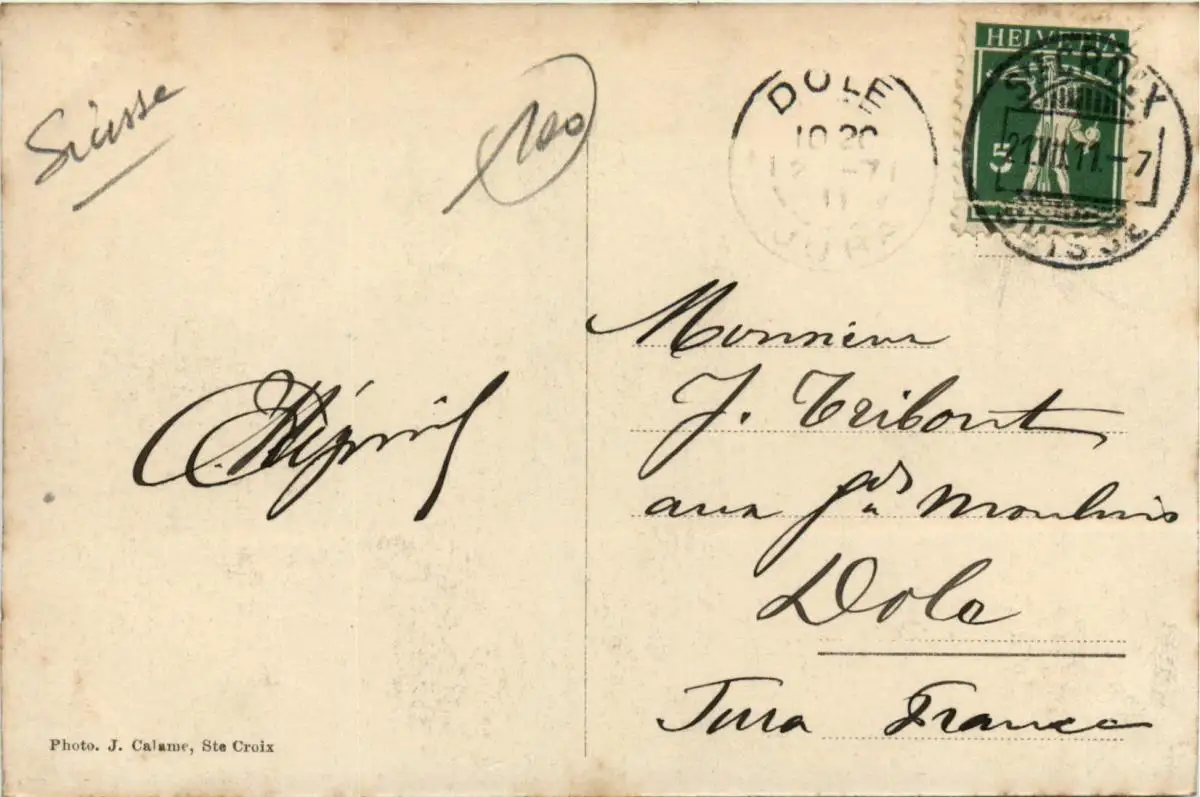 Suisse
100
DOLE
10 20
JURA
HELVETIA
5
STE CROIX
21.VII.11.-7
SUISSE
Monsieur
J. Tribout
aux Gds Moulins
Dole
Jura France
Photo. J. Calame, Ste Croix